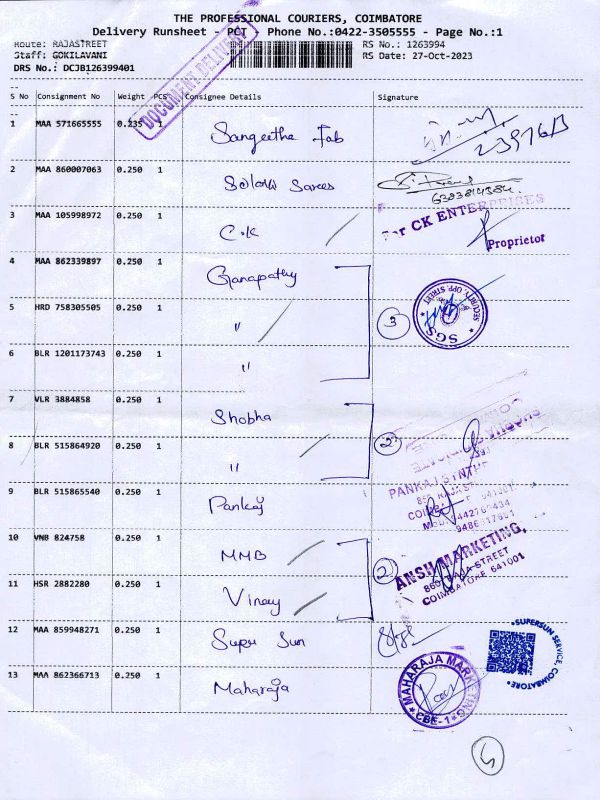 THE PROFESSIONAL COURIERS, COIMBATORE
Delivery Runsheet - PCT Phone No.:0422-3505555 - Page No.:1
Route: RAJASTREET RS No.: 1263994
Staff: GOKILAVANI RS Date: 27-Oct-2023
DRS No.: DCJB126399401
DOCUMENT DELIVERY
S No Consignment No Weight PCS Consignee Details Signature
1 MAA 571665555 0.235 1 Sangeetha Fab
2 MAA 860007063 0.250 1 Sarees
6383814384
3 MAA 105998972 0.250 1 C.K
For CK ENTERPRISES
Proprietor
4 MAA 862339897 0.250 1 Ganapathy
5 HRD 758305505 0.250 1 "
3
SECURITY, OPP. STREET
SGS
6 BLR 1201173743 0.250 1 "
7 VLR 3884858 0.250 1 Shobha
8 BLR 515864920 0.250 1 "
2
PANKAJ SYNTHE
9 BLR 515865540 0.250 1 Pankaj
10 VNB 824758 0.250 1 MMB
2
ANSH MARKETING,
860, RAJA STREET
COIMBATORE 641001
11 HSR 2882280 0.250 1 Vinay
12 MAA 859948271 0.250 1 Super Sun
SUPERSUN SERVICE, COIMBATORE
13 MAA 862366713 0.250 1 Maharaja
MAHARAJA MARKETING
CBE-1